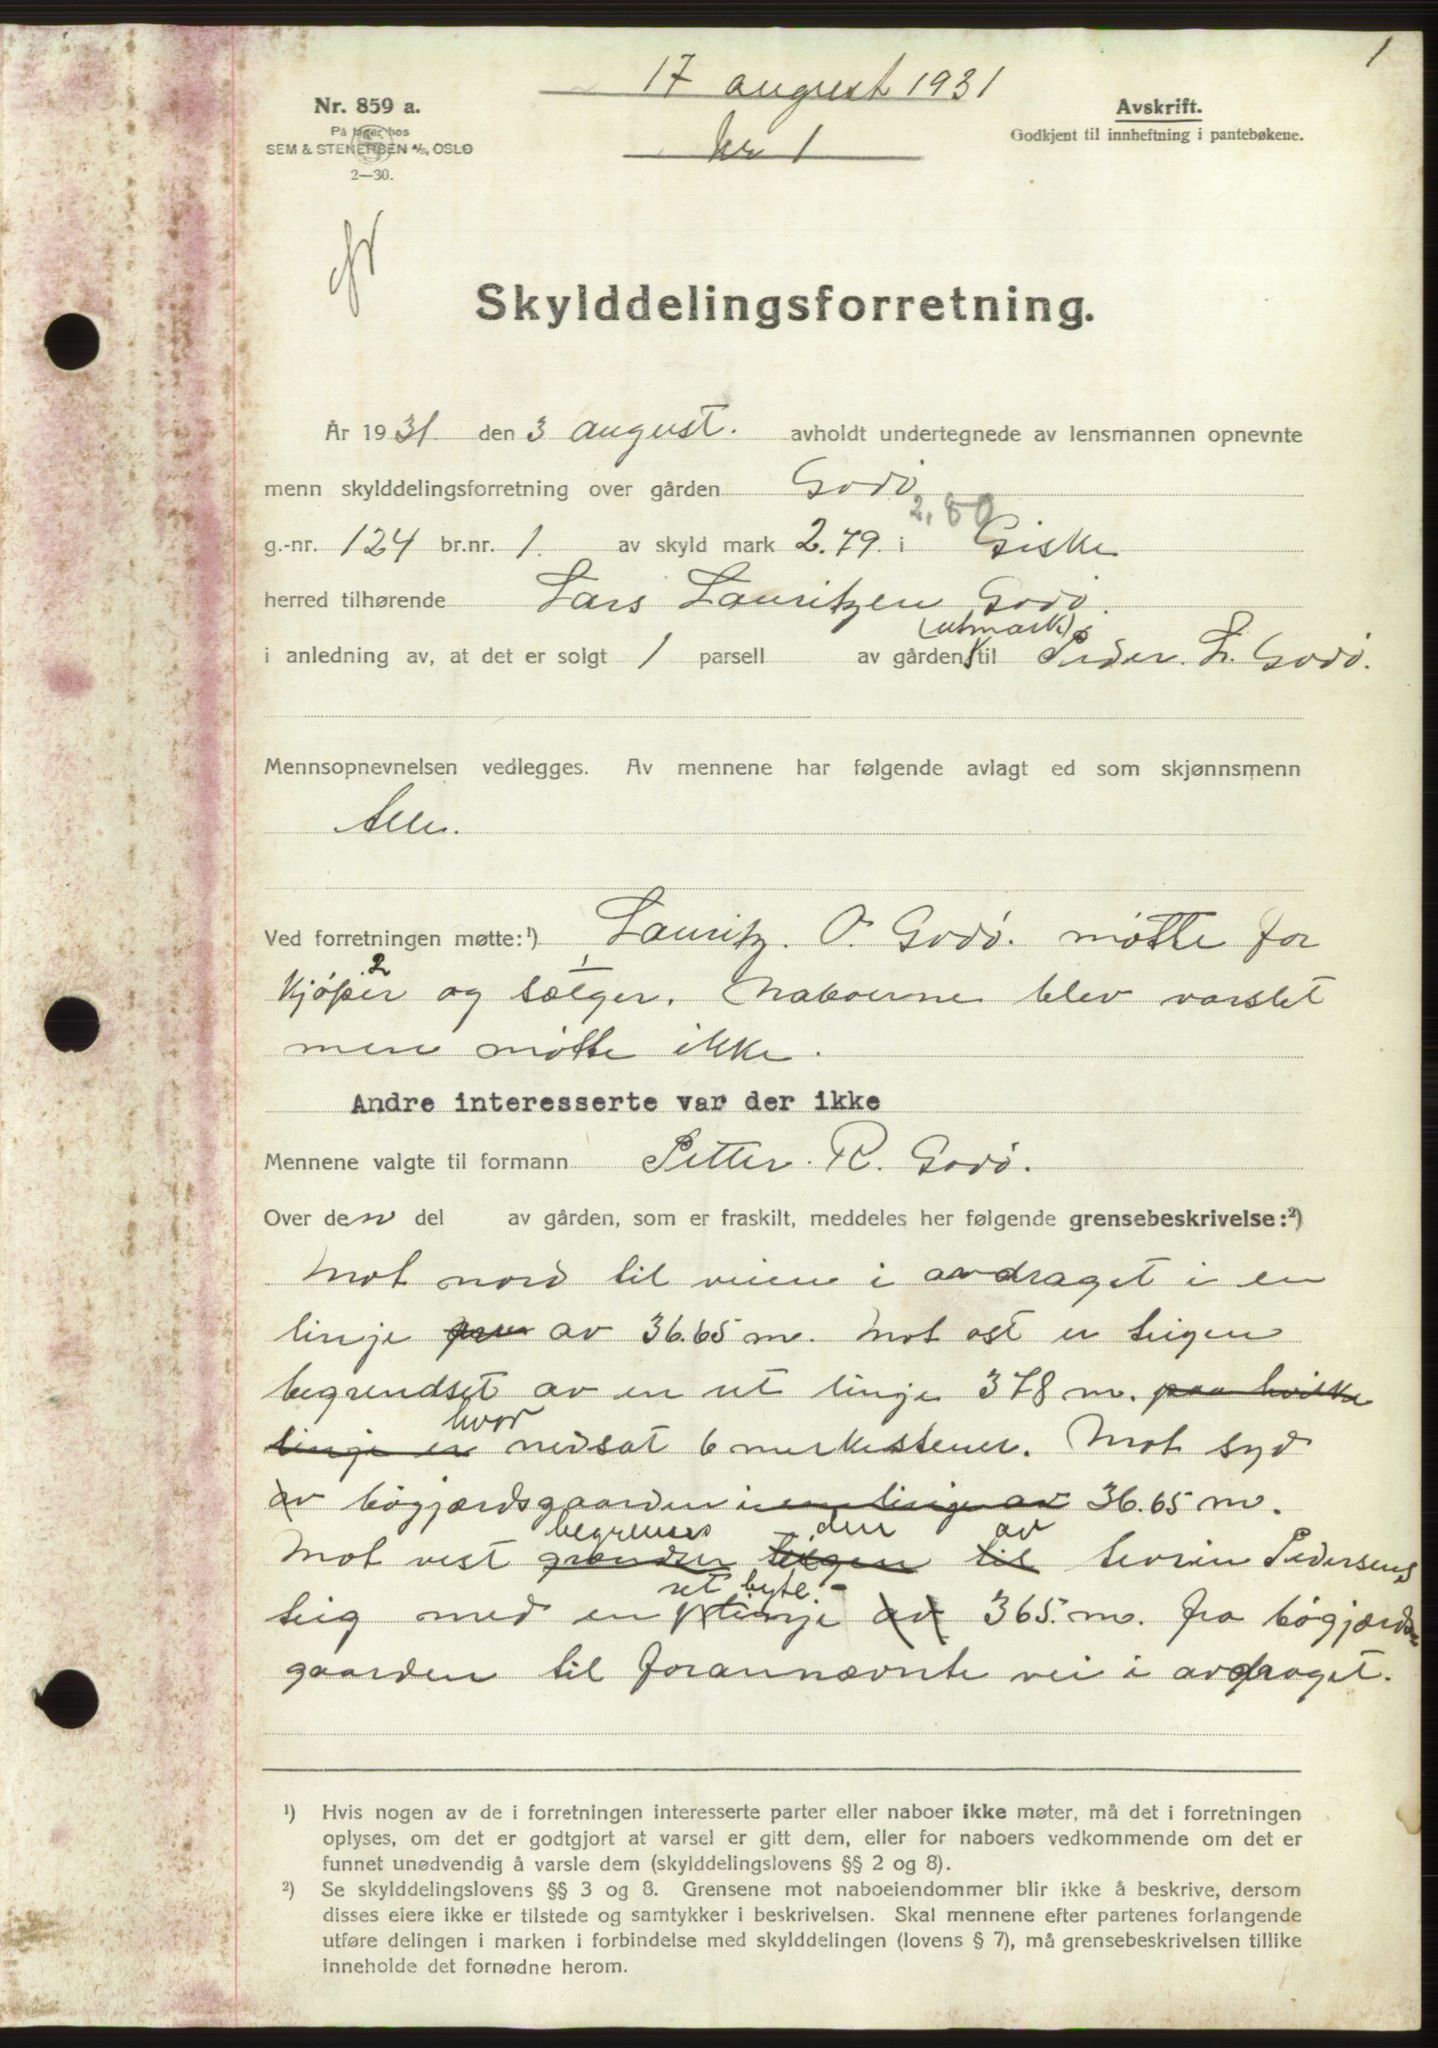 1
17 august 1931
Nr 1
Nr. 859 a.
På lager hos
SEM & STENERSEN A/S, OSLO
2—30.
Avskrift.
Godkjent til innheftning i pantebøkene.
Skylddelingsforretning.
År 1931. den 3 august. avholdt undertegnede av lensmannen opnevnte
menn skylddelingsforretning over gården Godö
2,80
g.-nr. 124 br.nr. 1. av skyld mark 2.79. i Giske
herred tilhørende Lars Lauritzen Godö.
(utmark)
i anledning av, at det er solgt 1 parsell av gården til Peder. L. Godö.
Mennsopnevnelsen vedlegges. Av mennene har følgende avlagt ed som skjønnsmenn
Alle.
Ved forretningen møtte:¹) Lauritz. O. Godö. mötte for
kjöper 2 og sælger 1. Naboerne blev varslet
men mötte ikke.
Andre interesserte var der ikke
Mennene valgte til formann Petter. R. Godö.
Over den del av gården, som er fraskilt, meddeles her følgende grensebeskrivelse:²)
Mot nord til veien i avdraget i en
linje av 36.65 m. Mot ost er teigen
begrendset av en ret linje 378 m. paa hvilke
hvor
linje er nedsat 6 merkestener. Mot syd
av bögjærdsgaarden i en linje av 36.65 m.
begrenses den av
Mot vest grændser teigen til Severin Pedersens
ret byte-
teig med en linje av 365. m. fra bögjærds-
gaarden til forannævnte vei i avdraget.
¹) Hvis nogen av de i forretningen interesserte parter eller naboer ikke møter, må det i forretningen
oplyses, om det er godtgjort at varsel er gitt dem, eller for naboers vedkommende om det er
funnet unødvendig å varsle dem (skylddelingslovens §§ 2 og 8).
²) Se skylddelingslovens §§ 3 og 8. Grensene mot naboeiendommer blir ikke å beskrive, dersom
disses eiere ikke er tilstede og samtykker i beskrivelsen. Skal mennene efter partenes forlangende
utføre delingen i marken i forbindelse med skylddelingen (lovens § 7), må grensebeskrivelsen tillike
inneholde det fornødne herom.